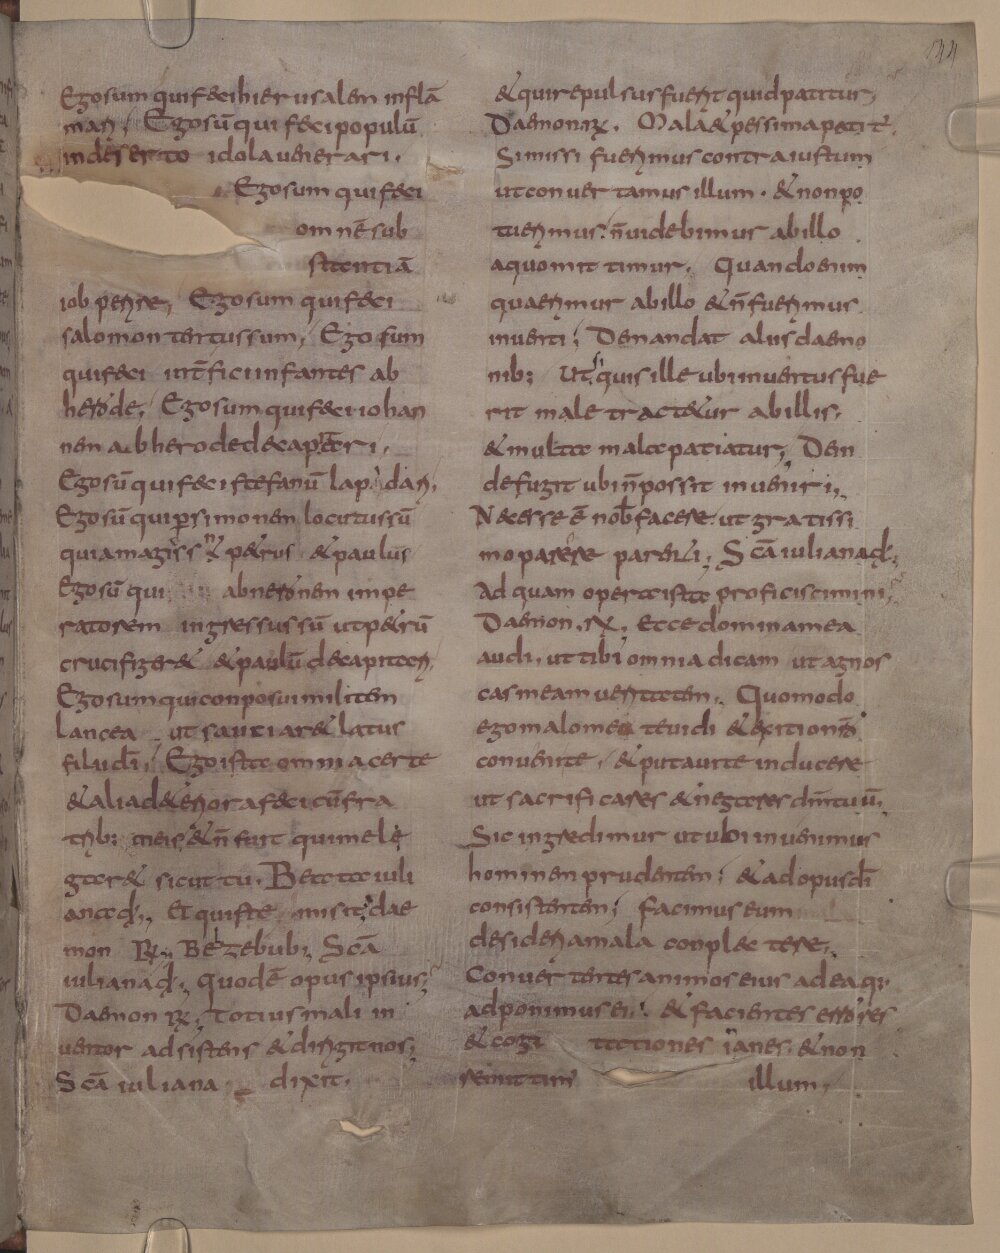 144
Egosum quifecihierusalem inflā
mari. Egosū qui fecipopulū
indeserto idolauenerari.
Egosum quifeci
omnēsub
stentiā
iob perire, Egosum quifeci
salomontertussum, Egosum
quifeci infantes ab
herode, Egosum quifeciiohan
nem abherodedecapitari,
Egosū quifeci stefanū lapidari,
Egosū quipsimonem locutussū
quiamagus & petrus & paulus
Egosū qui abneronem impe
ratorem ingressussū utpetrū
crucifigeret & paulū decapitari,
Egosumquiconposui militem
lancea ut sauciaret latus
filiidī, Egoista omnia certe
& aliad&eriorafecicūfra
trib; meis, & n̄ fuit quimele
garet sicut tu. Beata iuli
anad, Et quiste misit, dae
mon R. Belzebub; Scā
iulianad, quodē opus ipsius;
Daemon R, totiusmali in
uentor adsistens & dirigitnos;
Scā iuliana dixit.
& quirepulsusfuerit quidpatitur,
Daemon R. Mala & pessimapatit
Simissi fuerimuscontraiustum
utconuertamus illum. & nonpo
tuerimus. n̄uidebimur abillo
aquomittimur. Quandoenim
quaerimur abillo & n̄fuerimus
inuenti; Demandat aliisdaemo
nib; Ut, quisilleubiinuentusfue
rit maletractetur abillis,
& multa malapatiatur, Dein
defugit ubin̄possit inueniri,
Necesse ē nob facere. ut gratissi
moparere parenti; Scā iulianad;
Ad quam operaista proficiscimini,
Daemon R. Ecce dominamea
audi, ut tibi omniadicam ut agnos
cas meam ueritatem. Quomodo
egomalomeo teuidi & exitionib
conuenite, & putauite inducere
ut sacrificares & negares dm̄tuū.
Sic ingredimur utubi inuenimus
hominemprudentem; & adopusdī
consistentem; facimuseum
desideriamala conplectere,
Conuertentes animoseius adeaq;
adponimusei, & facientes errores
& cogi tationes inanes. & non
remittim illum,